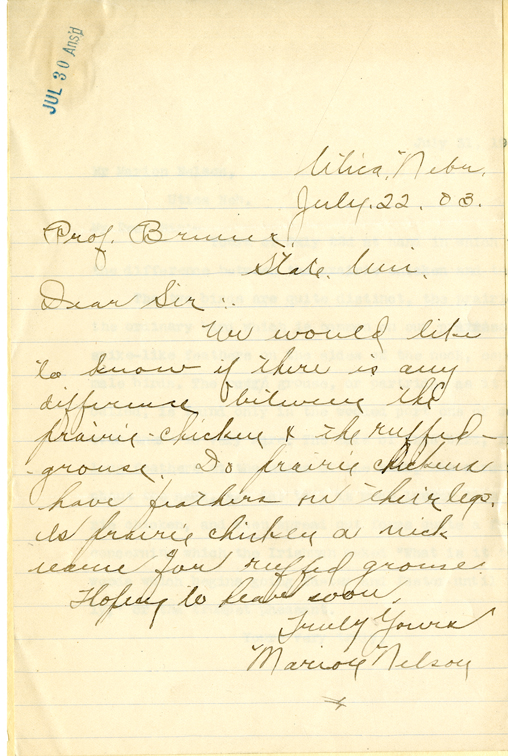 JUL 30 Ans'd
Utica, Nebr.
July. 22. 03.
Prof. Bruner,
State. Uni.
Dear Sir:.
We would like
to know if there is any
difference between the
prairie-chicken & the ruffed-
grouse. Do prairie chickens
have feathers on their legs.
Is prairie chicken a nick
name for ruffed grouse.
Hoping to hear soon,
Truly Yours
Marion Nelson